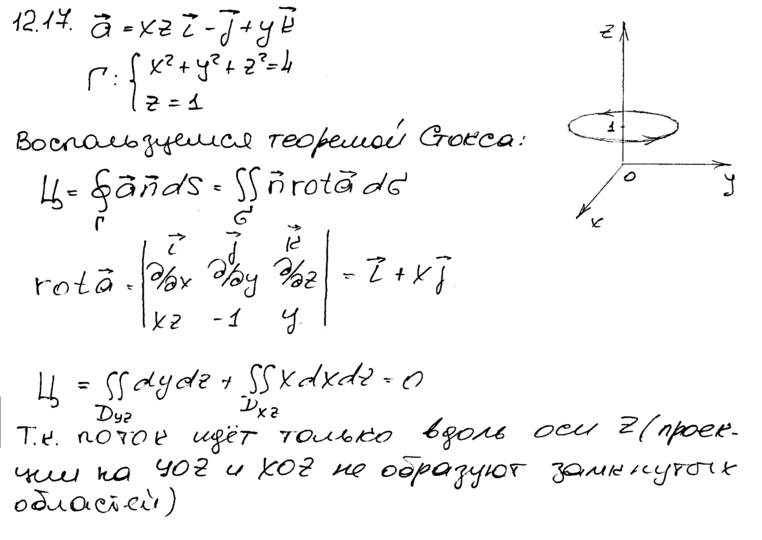 12.17. a⃗ = xz i⃗ - j⃗ + y k⃗
Г: { x² + y² + z² = 4
z = 1
z
1
0
y
x
Воспользуемся теоремой Стокса:
Ц = ∮_Г a⃗ n⃗ dS = ∬_σ n⃗ rot a⃗ dσ
rot a⃗ = | i⃗ j⃗ k⃗
∂/∂x ∂/∂y ∂/∂z
xz -1 y | = i⃗ + x j⃗
Ц = ∬_Dyz dydz + ∬_Dxz x dxdz = 0
Т.к. поток идёт только вдоль оси Z (проек-
ции на YOZ и XOZ не образуют замкнутых
областей)